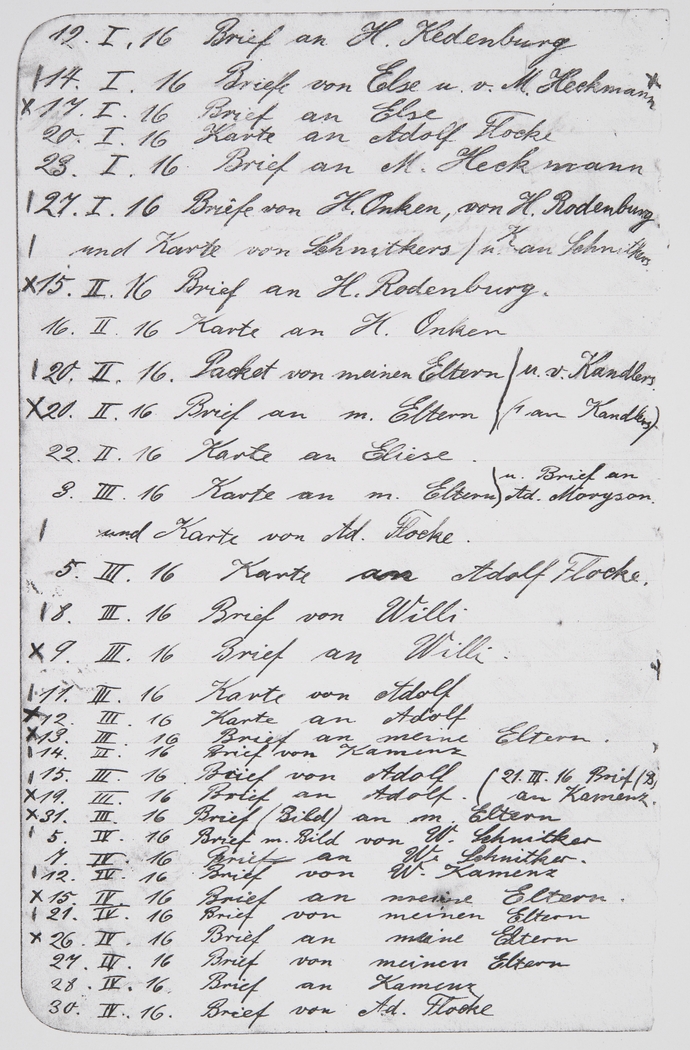 12. I. 16 Brief an H. Kedenburg
| 14. I. 16 Briefe von Else u. v. M. Heckmann
x 17. I. 16 Brief an Else
20. I. 16 Karte an Adolf Flocke
23. I. 16. Brief an M. Heckmann
| 27. I. 16 Briefe von H. Onken, von H. Rodenburg.
| und Karte von Schnitkers / u. K. an Schnitkers.
x 15. II. 16 Brief an H. Rodenburg.
16. II. 16 Karte an H. Onken
| 20. II. 16. Packet von meinen Eltern } u. v. Kandlers.
x 20. II. 16 Brief an m. Eltern } (1 an Kandlers)
22. II. 16 Karte an Eliese.
3. III. 16 Karte an m. Eltern) u. Brief an Ad. Moryson.
| und Karte von Ad. Flocke.
5. III. 16 Karte an Adolf Flocke.
| 8. III. 16 Brief von Willi
x 9. III. 16 Brief an Willi.
| 11. III. 16 Karte von Adolf
x 12. III. 16 Karte an Adolf
x 13. III. 16 Brief an meine Eltern.
| 14. III. 16 Brief von Kamenz
| 15. III. 16 Brief von Adolf ( 21. III. 16 Brief (8)
x 19. III. 16 Brief an Adolf. ( an Kamenz.
x 31. III. 16 Brief (Bild) an m. Eltern
| 5. IV. 16 Brief m. Bild von W. Schnitker
7. IV. 16 Brief an W. Schnitker.
| 12. IV. 16 Brief von W. Kamenz
x 15. IV. 16 Brief an meine Eltern.
| 21. IV. 16 Brief von meinen Eltern
x 26. IV. 16 Brief an meine Eltern
27. IV. 16 Brief von meinen Eltern
28. IV. 16 Brief an Kamenz
30. IV. 16. Brief von Ad. Flocke